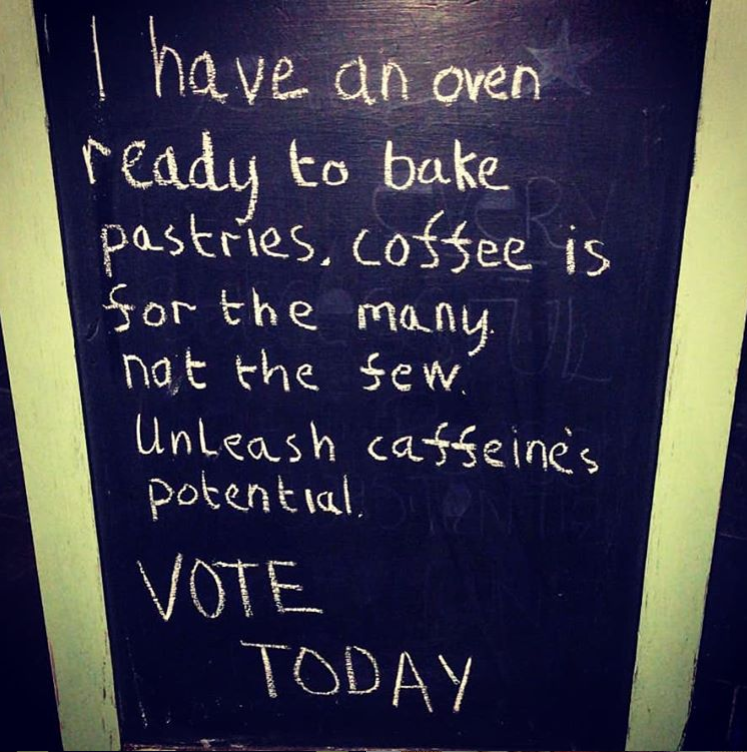 I have an oven
ready to bake
pastries. coffee is
for the many.
not the few.
Unleash caffeine's
potential.
VOTE
TODAY